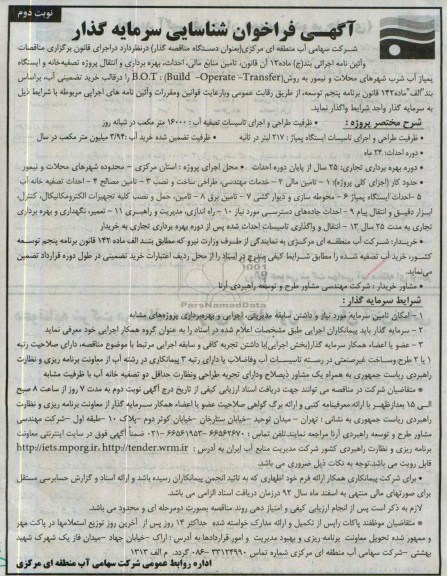 نوبت دوم
آگهی فراخوان شناسایی سرمایه گذار
شرکت سهامی آب منطقه ای مرکزی(بعنوان دستگاه مناقصه گذار) درنظردارد دراجرای قانون برگزاری مناقصات
وآئین نامه اجرائی بند(ج) ماده۱۲ آن قانون، تامین منابع مالی، احداث، بهره برداری و انتقال پروژه تصفیه‌خانه و ایستگاه
پمپاژ آب شرب شهرهای محلات و نیمور به روش(Build –Operate –Transfer) B.O.T : را درقالب خرید تضمینی آب، براساس
بند"الف"ماده۱۴۲ قانون برنامه پنجم توسعه، از طریق رقابت عمومی وبارعایت قوانین ومقررات وآئین نامه های اجرایی مربوطه با شرایط ذیل
به سرمایه گذار واجد شرایط واگذار نماید.
شرح مختصر پروژه :
• ظرفیت طراحی و اجرای تاسیسات تصفیه آب : ۱۶۰۰۰ متر مکعب در شبانه روز
• ظرفیت طراحی و اجرای تاسیسات ایستگاه پمپاژ : ۲۱۷ لیتر در ثانیه • ظرفیت تضمین شده خرید آب :۳/۹۴ میلیون متر مکعب در سال
• دوره احداث: ۲۴ ماه
• دوره بهره برداری تجاری: ۲۵ سال از پایان دوره احداث • محل اجرای پروژه : استان مرکزی – محدوده شهرهای محلات و نیمور
• حدود کار (اجزای کلی پروژه): ۱ – تامین مالی ۲ – خدمات مهندسی، طراحی ساخت و نصب ۳ – تامین مصالح ۴ – احداث تصفیه خانه آب
۵ – احداث ایستگاه پمپاژ ۶ – محوطه سازی و دیوار کشی ۷ – تامین برق ۸ – تامین، حمل و نصب کلیه تجهیزات الکترومکانیکال، کنترل،
ابزار دقیق و انتقال پیام ۹ – احداث جاده‌های دسترسی مورد نیاز ۱۰ – راه اندازی، مدیریت و راهبری ۱۱ – تعمیر، نگهداری و بهره برداری
تجاری به مدت ۲۵ سال ۱۳ – انتقال و واگذاری تاسیسات احداث شده پس از دوره بهره برداری تجاری به خریدار
• خریدار: شرکت آب منطقه ای مرکزی به نمایندگی از طرف وزارت نیرو که مطابق بند الف ماده ۱۴۲ قانون برنامه پنجم توسعه
کشور، خرید آب تصفیه شده را مطابق شرایط کیفی مندرج در اسناد را از محل ردیف اعتبارات خرید تضمینی در طول دوره قرارداد تضمین
می‌نماید.
• مشاور خریدار : شرکت مهندسی مشاور طرح و توسعه راهبردی آرنا
شرایط سرمایه گذار :
۱ – امکان تامین سرمایه مورد نیاز و داشتن سابقه مدیریتی، اجرایی و بهره‌برداری پروژه‌های مشابه
۲ – سرمایه گذار باید پیمانکاران اجرایی طبق مشخصات اعلام شده در اسناد را به عنوان گروه همکار اجرایی خود معرفی نماید
۳ – عضو یا اعضاء همکار سرمایه گذار(بخش اجرایی)با داشتن تجربه کافی و سابقه اجرایی مرتبط با موضوع مناقصه، دارای صلاحیت رتبه
۱ یا ۲ طرح وساخت غیرصنعتی در رسته تاسیسات آب وفاضلاب یا دارای رتبه ۳ پیمانکاری در رشته آب از معاونت برنامه ریزی و نظارت
راهبردی ریاست جمهوری به همراه یک مشاور ذیصلاح ودارای تجربه طراحی ونظارت حداقل دو تصفیه خانه آب با ظرفیت مشابه
• متقاضیان شرکت در مناقصه می توانند جهت دریافت اسناد ارزیابی کیفی از تاریخ درج آگهی نوبت دوم به مدت ۷ روز از ساعت ۸ صبح
الی ۱۵ بعدازظهر با ارائه معرفینامه کتبی و ارائه برگ گواهی صلاحیت عضو یا اعضاء همکار سرمایه گذار از معاونت برنامه ریزی و نظارت
راهبردی ریاست جمهوری به نشانی : تهران – میدان توحید –خیابان ستارخان –خیابان کوثر دوم –پلاک ۱۰ –طبقه اول –شرکت مهندسی
مشاور طرح و توسعه راهبردی آرنا مراجعه نمایند.تلفن تماس : ۶۶۵۶۲۶۷۰–۶۶۵۶۱۹۵۳–۰۲۱ ضمناً آگهی فوق در سایت اینترنتی معاونت
برنامه ریزی و نظارت راهبردی کشور شرکت مدیریت منابع آب ایران به آدرس : http://iets.mporg.ir، http://tender.wrm.ir
قابل رویت می‌باشد.توجه به نکات ذیل ضروری می باشد.
• برای شرکت پیمانکاری همکار ارائه فرم خود اظهاری که به تائید انجمن پیمانکاران رسیده باشد و ارائه اسناد و گزارش حسابرسی مستقل
برای صورتهای مالی منتهی به اسفند ماه سال ۹۲ درزمان دریافت اسناد الزامی می باشد.
لازم به ذکر است پس از انجام ارزیابی کیفی و امتیاز دهی روند مناقصه بصورت دومرحله ای و محدود می باشد.
• متقاضیان موظفند پاکات رایس از تکمیل و ارائه مدارک خواسته شده حداکثر ۱۴ روز پس از آخرین روز توزیع استعلامها در پاکت مهر
و ممهور شده تحویل معاونت برنامه ریزی و بهبود مدیریت و امور قراردادها به آدرس : اراک –خیابان جهاد –میدان فاز یک شهرک شهید
بهشتی –شرکت سهامی آب منطقه ای مرکزی شماره تماس ۳۳۱۲۴۹۹۰–۰۸۶ گردد. م الف ۱۳۱۳
اداره روابط عمومی شرکت سهامی آب منطقه ای مرکزی
ParsNamadData